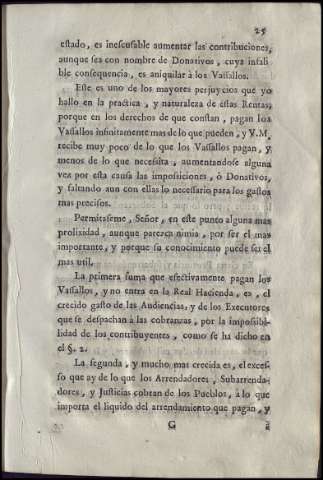 25
estado, es inescusable aumentar las contribuciones,
aunque sea con nombre de Donativos, cuya infali
ble consequencia, es aniquilar à los Vassallos.
Este es uno de los mayores perjuycios que yo
hallo en la practica, y naturaleza de estas Rentas,
porque en los derechos de que constan, pagan los
Vassallos infinitamente mas de lo que pueden, y V.M.
recibe muy poco de lo que los Vassallos pagan, y
menos de lo que necessita, aumentandose alguna
vez por esta causa las imposiciones, ò Donativos,
y faltando aun con ellas lo necessario para los gastos
mas precisos.
Permitaseme, Señor, en este punto alguna mas
prolixidad, aunque parezca nimia, por ser el mas
importante, y porque su conocimiento puede ser el
mas util.
La primera suma que efectivamente pagan los
Vassallos, y no entra en la Real Hacienda, es, el
crecido gasto de las Audiencias, y de los Executores
que se despachan à las cobranzas, por la impossibi-
lidad de los contribuyentes, como se ha dicho en
el §. 2.
La segunda, y mucho mas crecida es, el exces-
so que ay de lo que los Arrendadores, Subarrenda-
dores, y Justicias cobran de los Pueblos, à lo que
importa el liquido del arrendamiento que pagan, y
G à